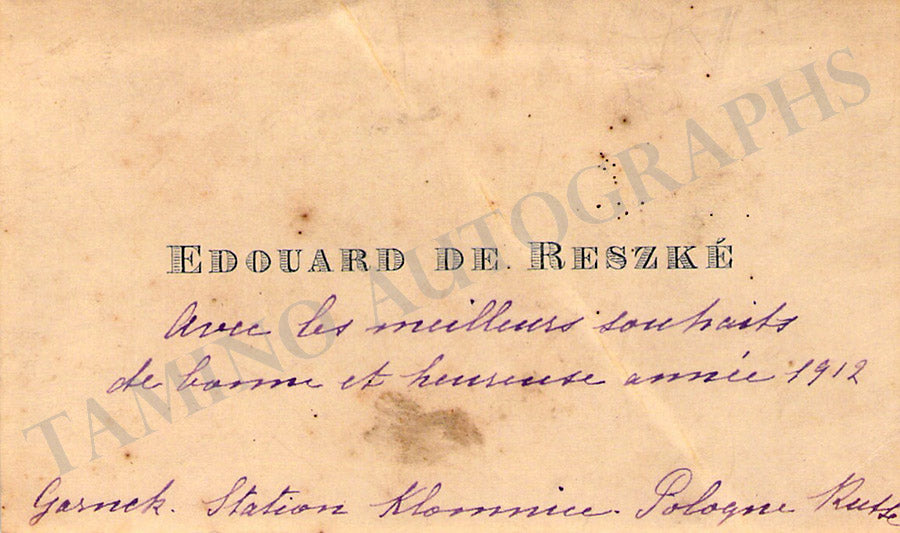 EDOUARD DE RESZKÉ
Avec les meilleurs souhaits
de bonne et heureuse année 1912
Garnek. Station Klomnice. Pologne Russe
TAMINO AUTOGRAPHS